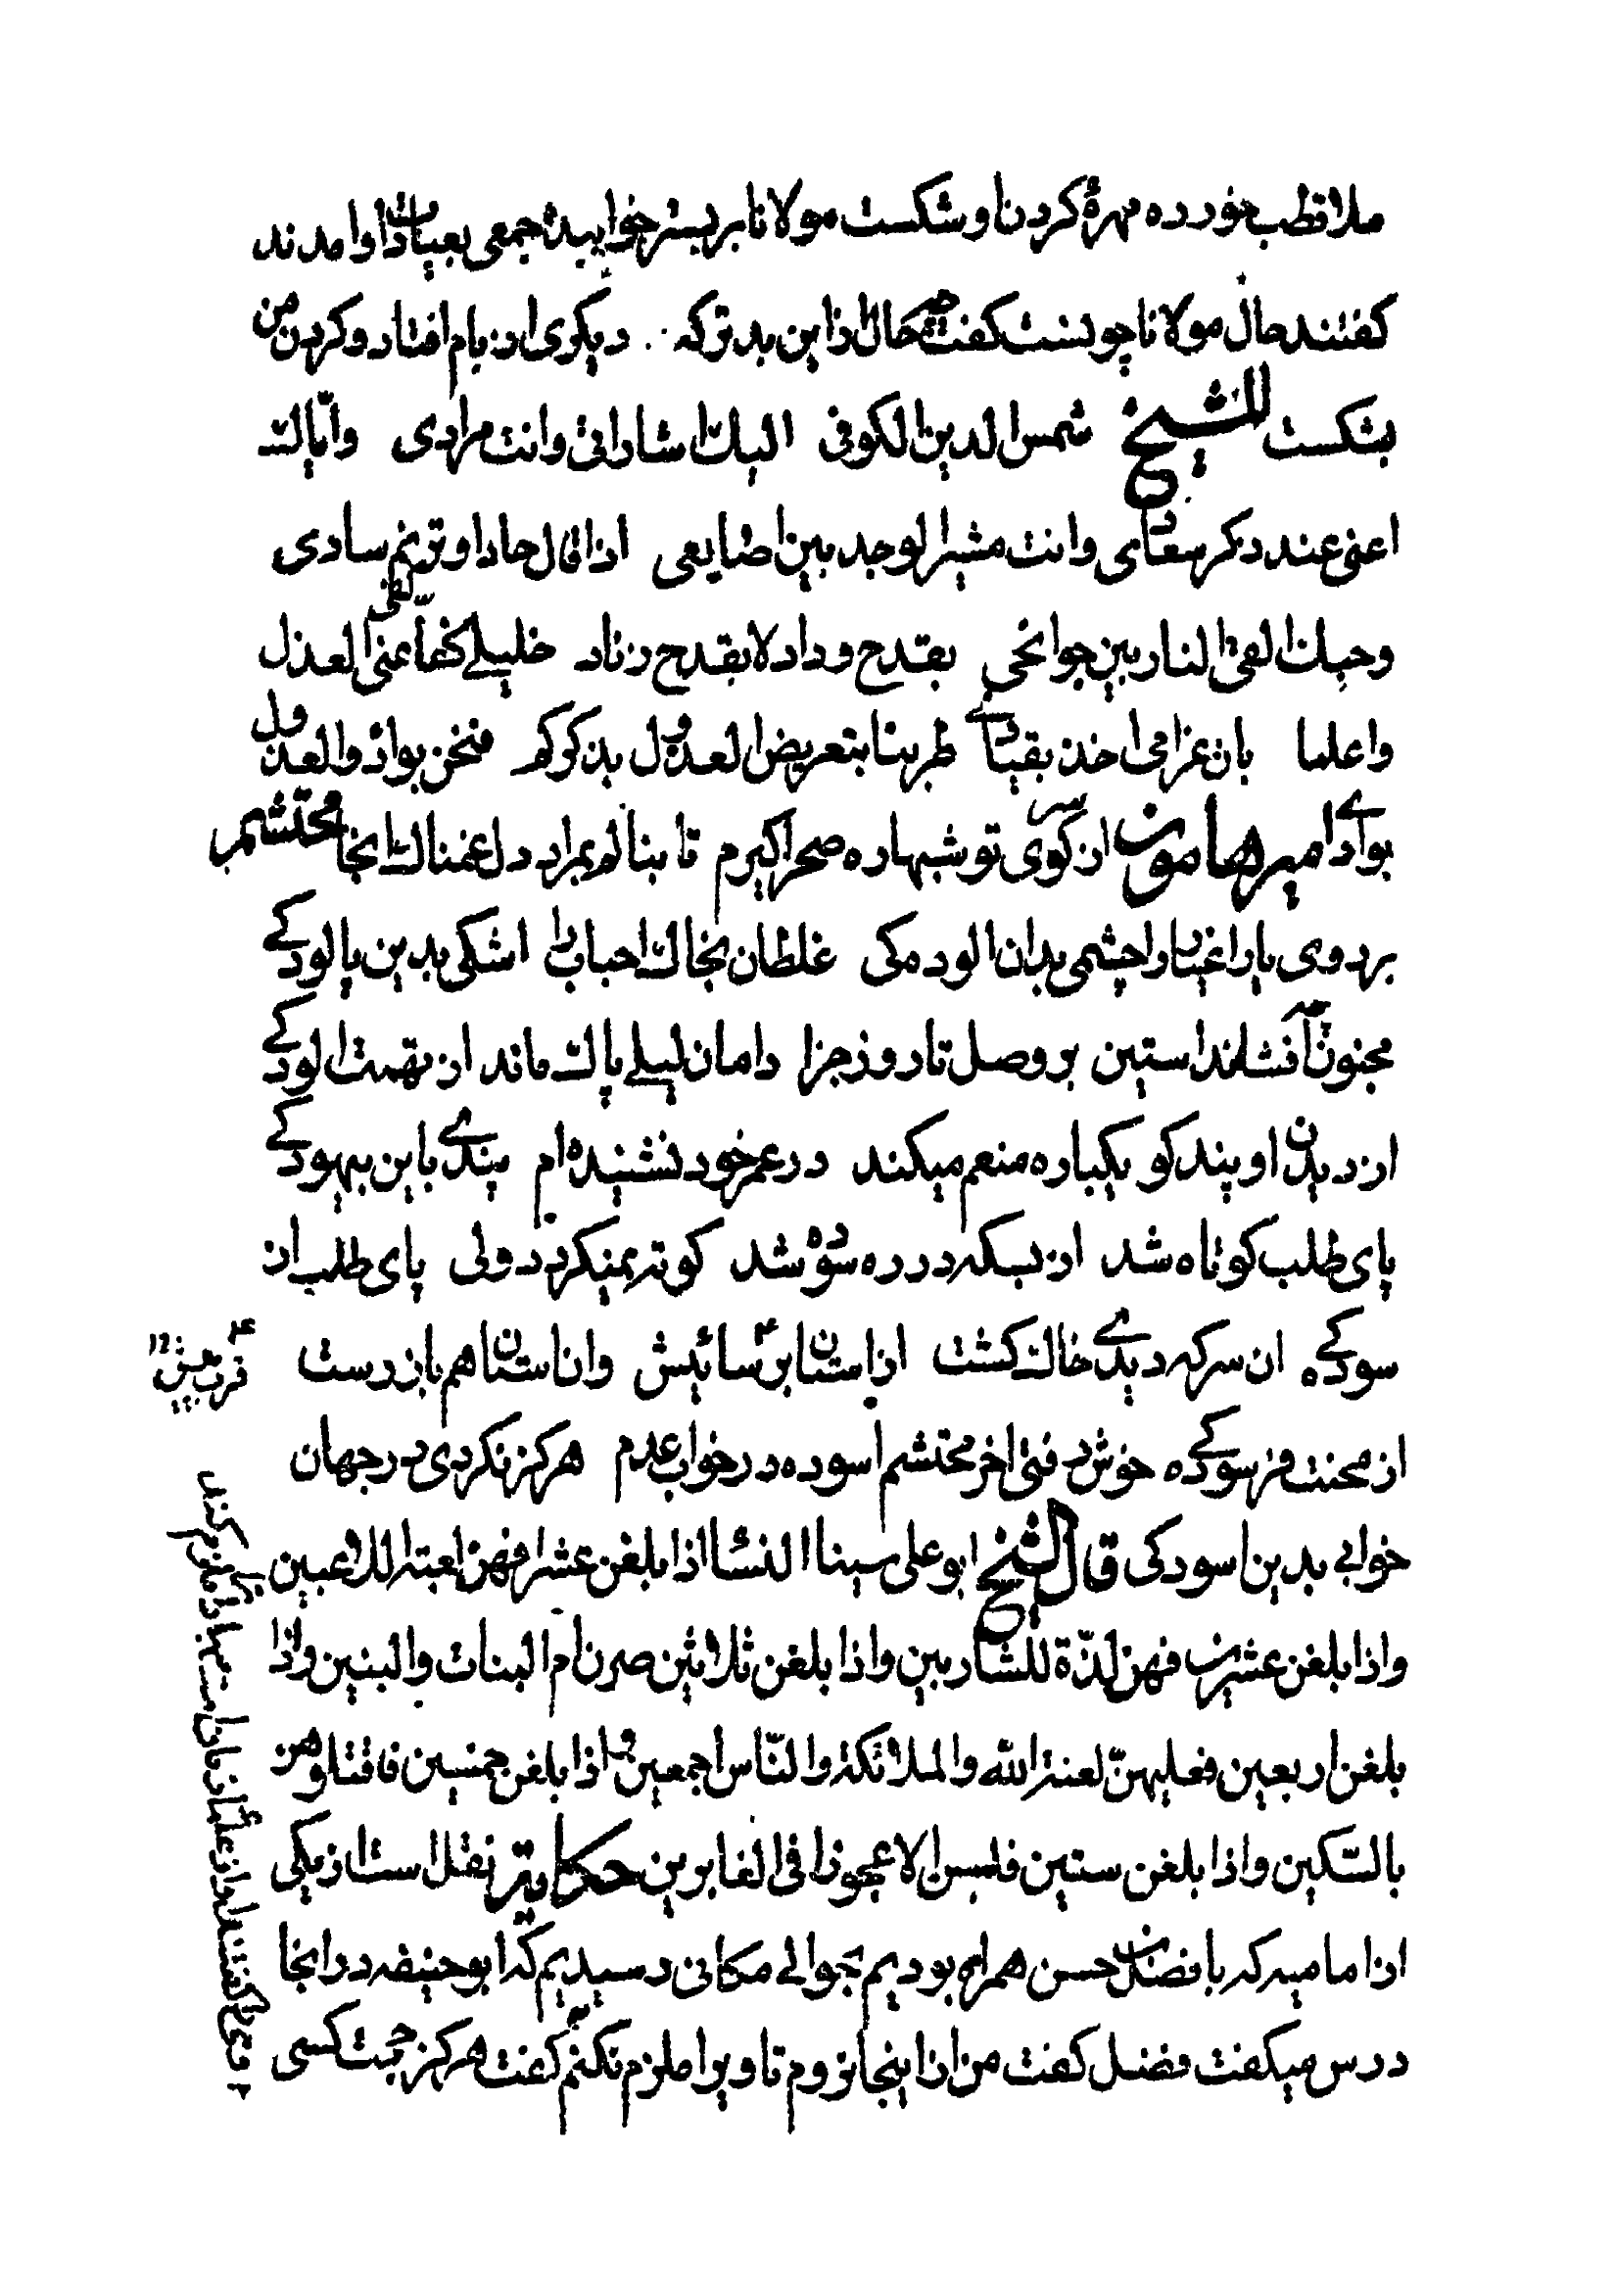 ملا قطب خورده مهرهٔ کردن او شکست مولانا بر بستر خوابیده جمعی بعیادت او امدند
کفتند حال مولانا چونست کفت چه حال از این بدتر که دیکری از بام افتاد و کردن من
بشکست للشیخ شمس الدین الکوفی الیک اشاراتی وانت مرادی وایاک
اعنی عند ذکر سعادی وانت مثیر الوجد بین اضایعی اذا قال حاد او ترنم سادی
وحبک القی النار بین جوانحی بقدح وداد لا بقدح زناد خلیلی کفا عنی العذل
واعلما بان غرامی اخذ بقیادی طربنا بتعریض العذول بذکرکم فنحن بواد والعذول
بوادی امیر هامون از کوی تو شبها ره صحرا کیرم تا بنالم بمراد دل غمناک انجا محتشم
بر روی یار اغیار را چشمی بدان الودکی غلطان بخاک احباب را اشکی بدین پالودکی
مجنون چه افشاند استین بر وصل تا روز جزا دامان لیلی پاک ماند از تهمت الودکی
از دیدن او پند کو یکباره منعم میکند در عمر خود نشنیده ام پندی باین بیهودکی
پای طلب کوتاه شد از بسکه در ره سوده شد کوته نمیکردد ولی پای طلب از
سودکی ان سر که دیدی خاک کشت از استان بر سائیش وان استان هم باز رست
از محنت فرسودکی خوش رفتی اخر محتشم اسوده در خواب عدم هرکز نکردی در جهان
خوابی بدین اسودکی قال الشیخ ابو علی سینا النسا اذا بلغن عشرا فهن لعبة اللاعبین
واذا بلغن عشرین فهن لذّة للشاربین واذا بلغن ثلاثین صرن ام البنات والبنین واذا
بلغن اربعین فعلیهنّ لعنة الله والملائکة والنّاس اجمعین و اذا بلغن خمسین فاقتلوهن
بالسّکین واذا بلغن ستین فلیس الا عجوزا فی الغابرین حکایة نقل است از یکی
از امامیه که با فضل حسن همراه بودیم بحوالی مکانی رسیدیم که ابو حنیفه در انجا
درس میکفت فضل کفت من از اینجا نروم تا ویرا ملزم نکنم کفت هرکز حجت کسی